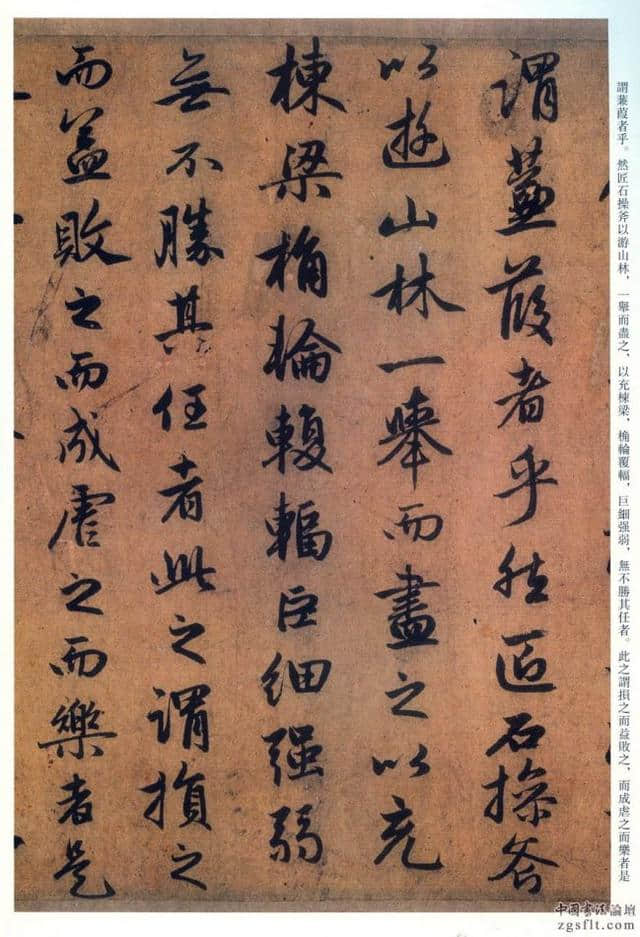 謂蒹葭者乎。然匠石操斧以游山林，一舉而盡之，以充棟梁、桷輪覆輻，巨細强弱，無不勝其任者。此之謂損之而益敗之，而成虐之而樂者是
謂蒹葭者乎然匠石操斧
以遊山林一舉而盡之以充
棟梁桷輪輹輻巨細强弱
無不勝其任者此之謂損之
而益敗之而成虐之而樂者是
中國書法論壇
zgsflt.com